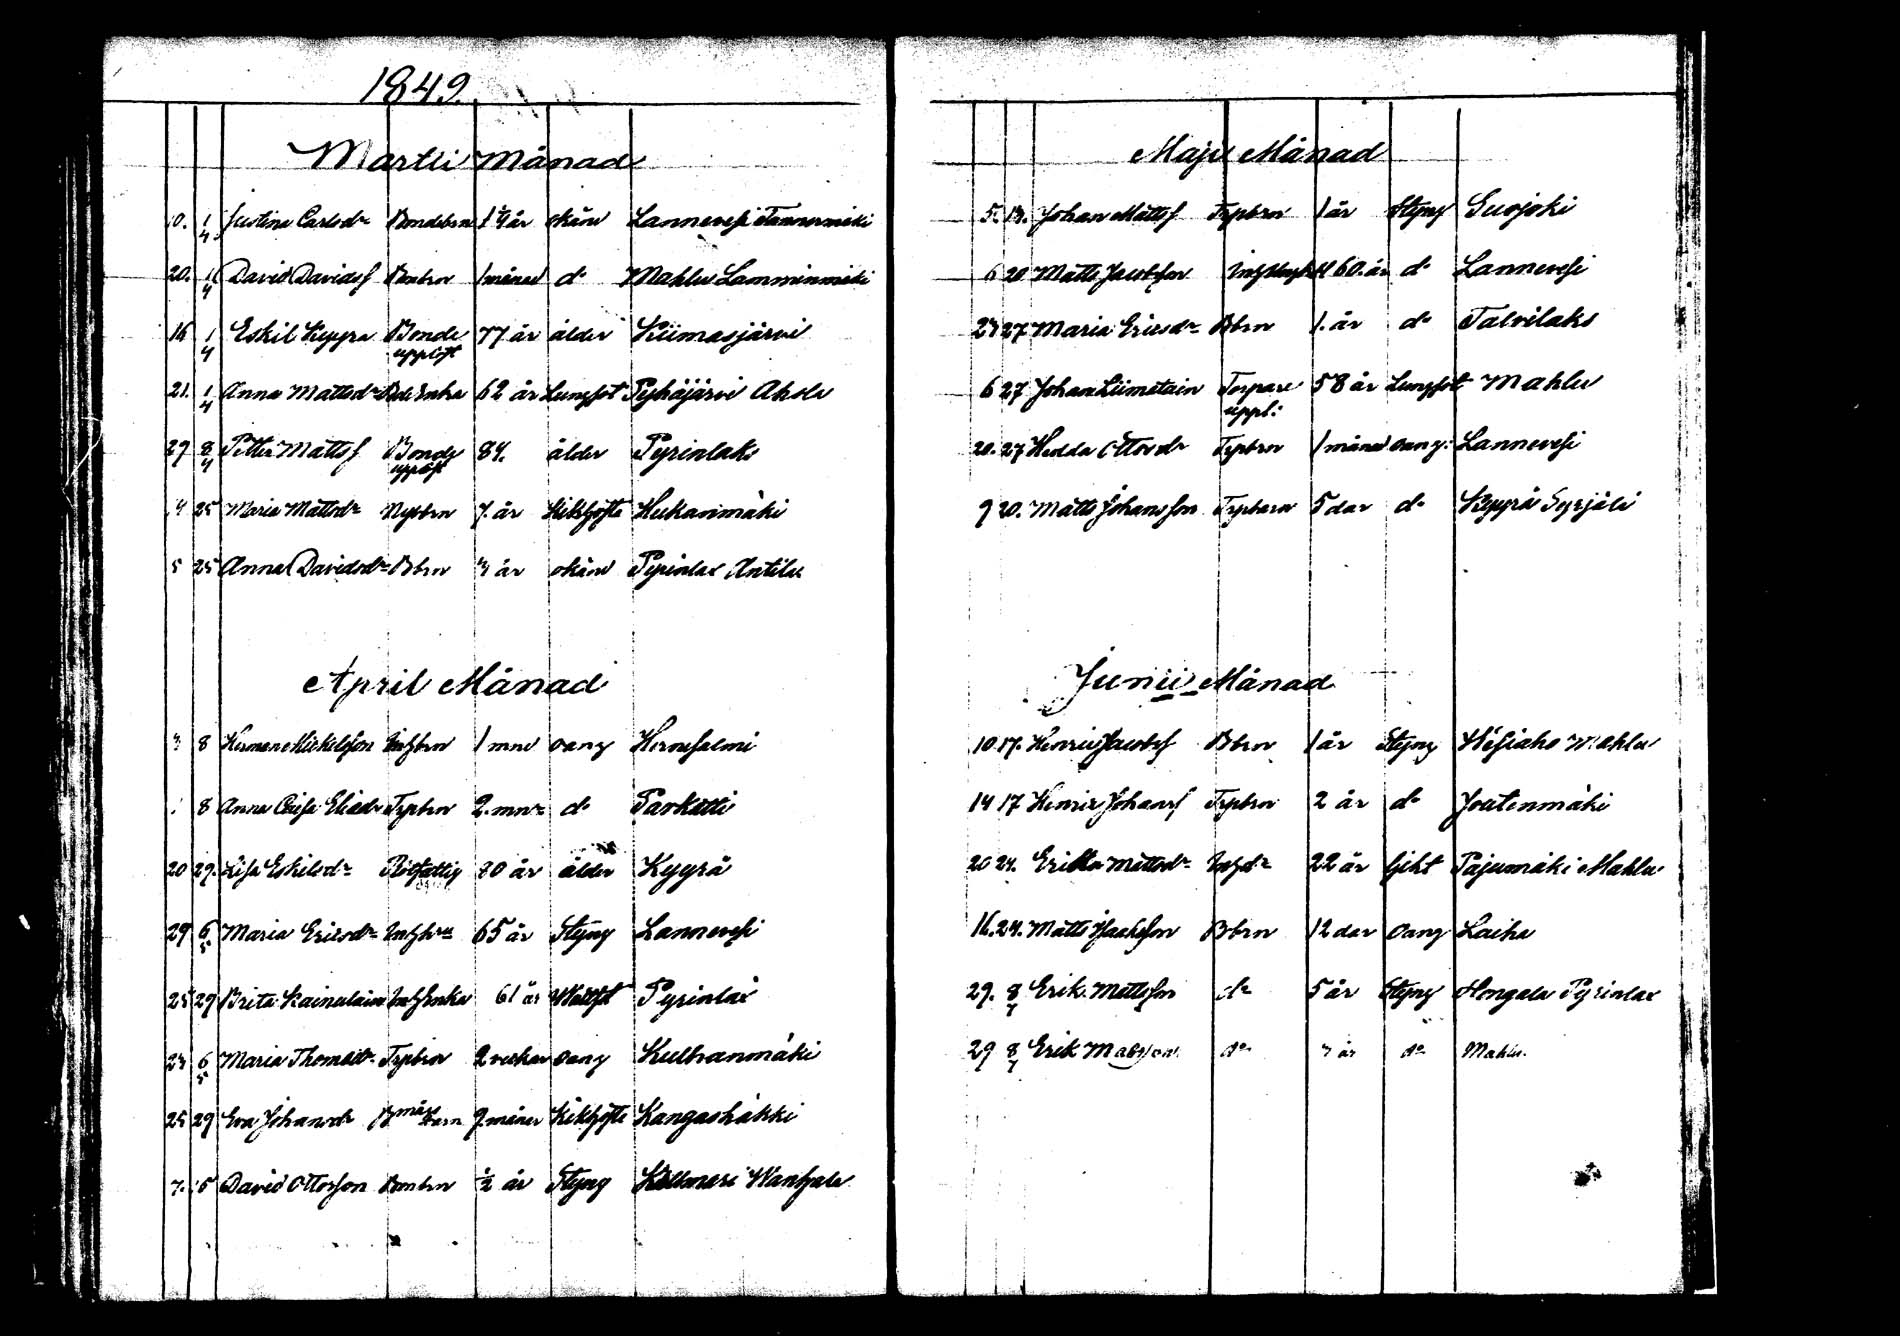 1849.
Martii Månad
10. 1/4 Justina Carlsdr Bondebrn 1 1/4 år okänd Lannevesi Tammermäki
20. 1/4 David Davidsf Bonbrn 1 månad do Mahlu Lamminmäki
16 1/4 Eskil Kyyrä Bonde 77 år ålder Kiimasjärvi
uppl:st
21. 1/4 Anna Mattsdr Bde Enka 62 år Lungsot Pyhäjärvi Ahola
29 8/4 Petter Mattsf Bonde 84. ålder Pyrinlaks
uppl:st
4 25 Maria Mattsdr Nybbrn 7. år Kikhosta Hukanmäki
5 25 Anna Davidsdr Bbrn 3 år okänd Pyrinlax Antila
April Månad
3 8 Herman Mickelsson Inhbrn 1 mnd oang Hernesalmi
8 Anna Caisa Eliædr Trpbrn 2. mnr do Parkatti
20 29. Lisa Eskilsdr Rotfattig 80 år ålder Kyyrä
29 6/5 Maria Ericsdr Inhhru 65 år Styng Lannevesi
25 29 Brita Kainulain InhEnka 61 år Wattsot Pyrinlax
23 6/5 Maria Thomædr Trpbrn 2 veckor oang Kulhanmäki
25 29 Eva Johansdr Bmågbarn 9 måner Kikhosta Kangashäkki
7. 5 David Ottosson Bonbrn 1/2 år Styng Kolkanlax
Maji Månad
5. 13. Johan Mattsf Trpbrn 1 år Styng Suojoki
6 20 Matts Jacobsson Inhysing 60. år do Lannevesi
23 27 Maria Ericsdr Bbrn 1. år do Talvilaks
6 27 Johan Liimatain Torpare 58 år Lungsot Mahlu
uppl:
20. 27 Hedda Ottosdr Trpbrn 1 månad oang: Lannevesi
9 20. Matts Johansson Trpbarn 5 dar do Kyyrä Syrjälä
Junii Månad
10 17. Henric Jacobsf Bbrn 1 år Styng Wesiaho Mahlu
14 17 Henric Johansf Trpbrn 2 år do Joutenmäki
20 24. Erika Mattsdr Inhdr 22 år Gikt Pajumäki Mahlu
16. 24. Matts Isaksson Bbrn 12 dar oang Laiha
29. 8/7 Erik Mattsson do 5 år Styng Hongala Pyrinlax
29 8/7 Erik Matsson do 3 år do Mahlu.